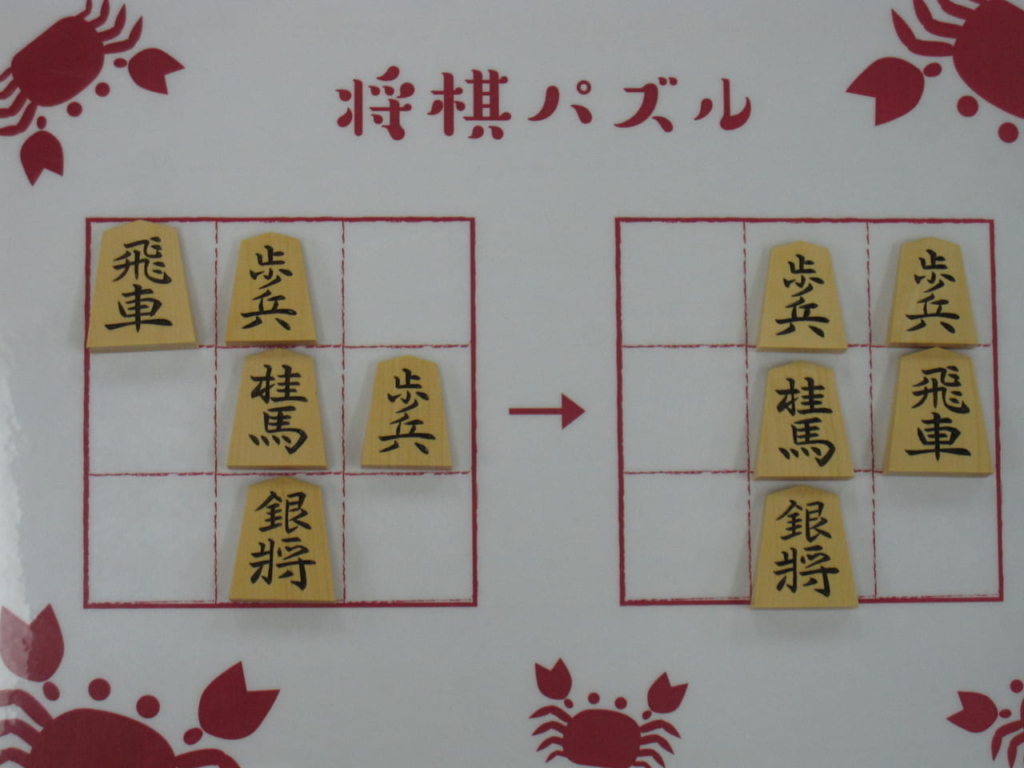 将棋パズル
飛車 歩兵 歩兵 歩兵
桂馬 歩兵 桂馬 飛車
銀将 銀将